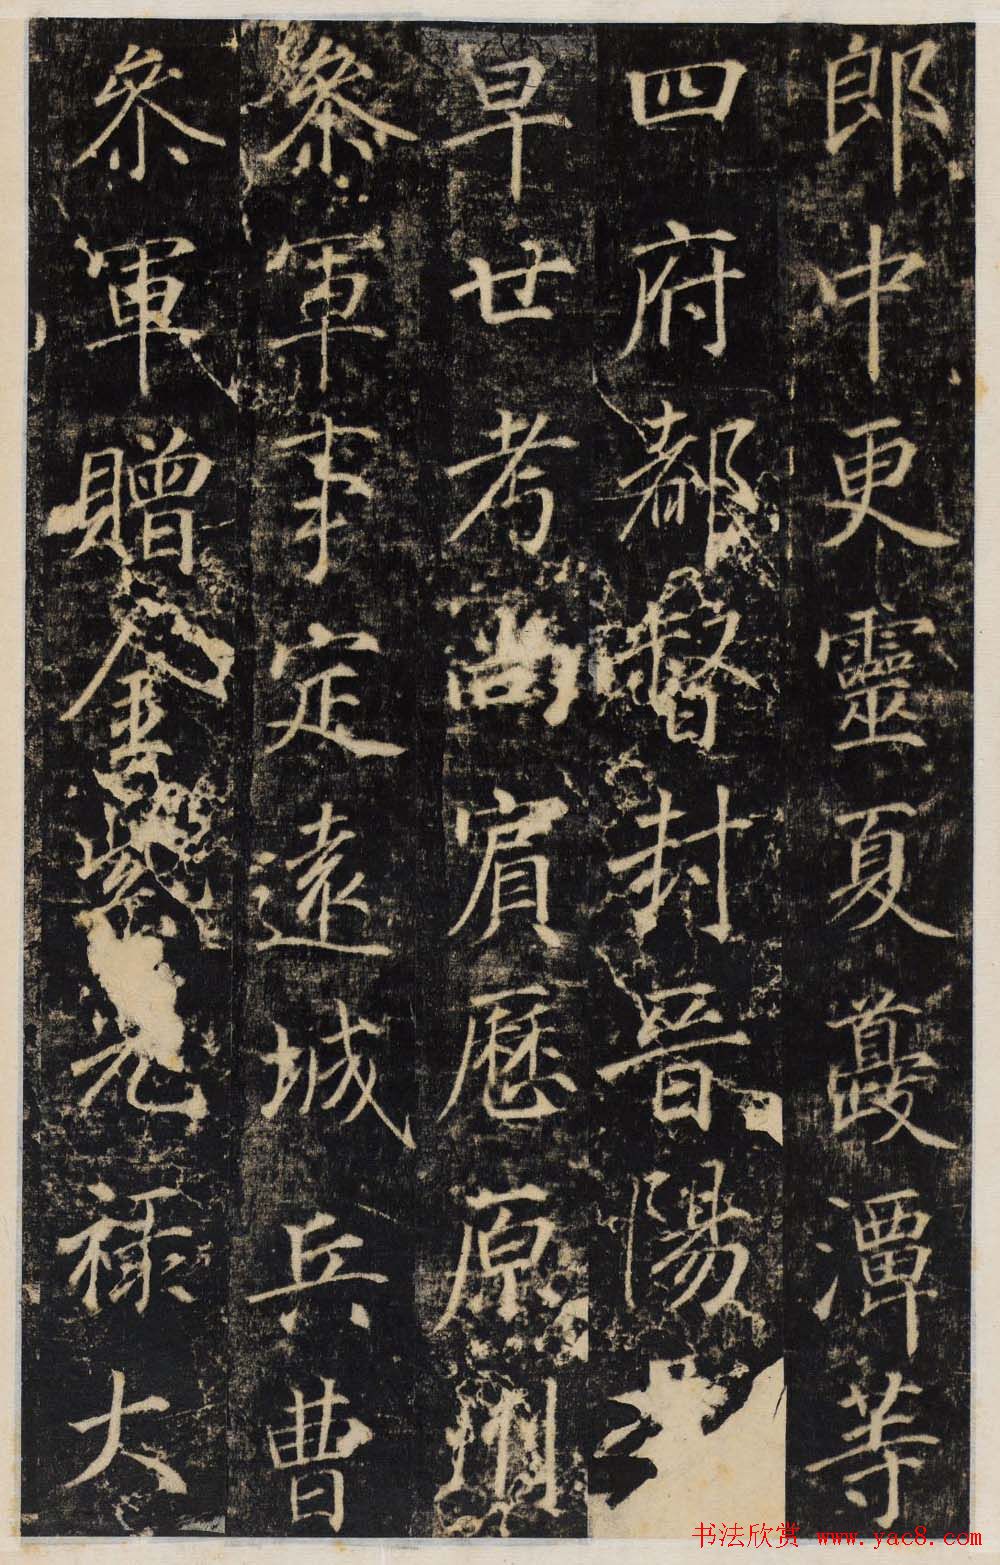 郎中更靈夏夔潭等
四府都督封晉陽
早世考尚肩歷原州
叅軍事定遠城兵曹
叅軍贈金紫光祿大
书法欣赏 www.yac8.com